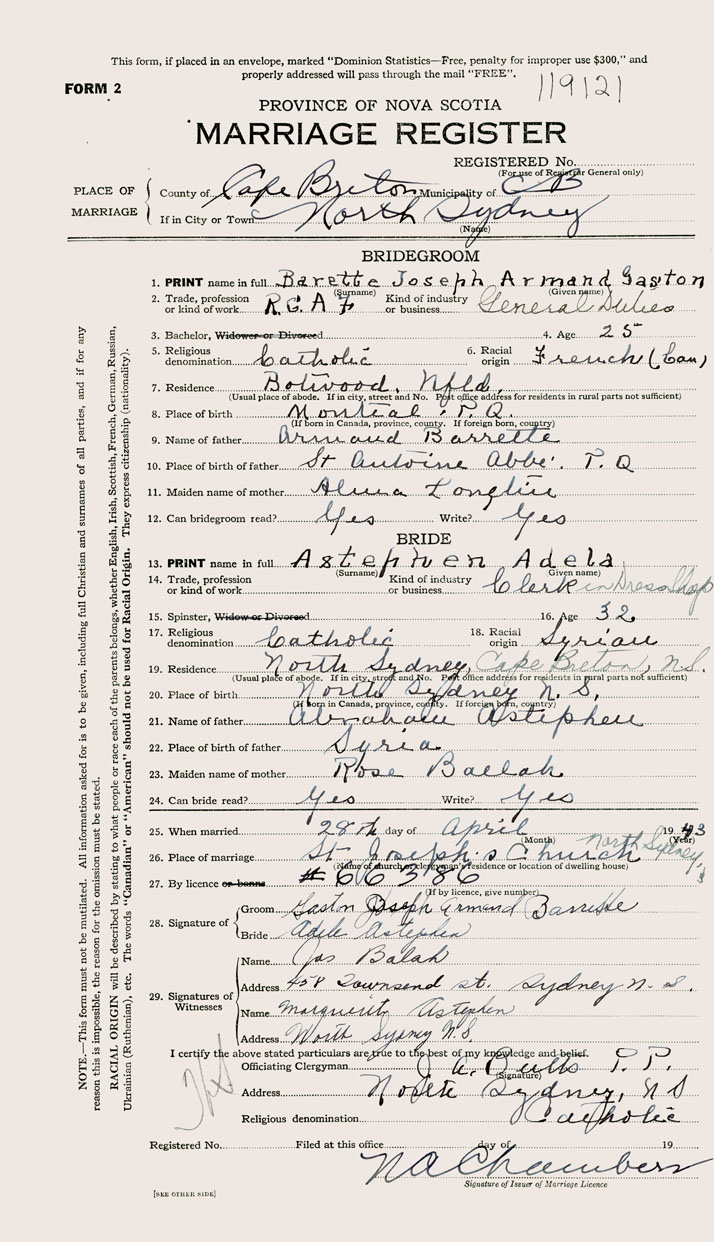 This form, if placed in an envelope, marked “Dominion Statistics—Free, penalty for improper use $300,” and
properly addressed will pass through the mail “FREE”.
FORM 2
119121
PROVINCE OF NOVA SCOTIA
MARRIAGE REGISTER
REGISTERED No.
(For use of Registrar General only)
PLACE OF MARRIAGE
County of Cape Breton Municipality of CB
If in City or Town North Sydney
(Name)
BRIDEGROOM
1. PRINT name in full Barette Joseph Armand Gaston
(Surname) (Given name)
2. Trade, profession or kind of work R.C.A.F Kind of industry or business General Duties
3. Bachelor, Widower or Divorced 4. Age 25
5. Religious denomination Catholic 6. Racial origin French (Can)
7. Residence Botwood, Nfld.
(Usual place of abode. If in city, street and No. Post office address for residents in rural parts not sufficient)
8. Place of birth Montreal P.Q.
(If born in Canada, province, county. If foreign born, country)
9. Name of father Armand Barrette
10. Place of birth of father St Antoine Abbe'. P.Q
11. Maiden name of mother Alma Longtin
12. Can bridegroom read? Yes Write? Yes
BRIDE
13. PRINT name in full Astephen Adela
(Surname) (Given name)
14. Trade, profession or kind of work Kind of industry or business Clerk in Dress Shop
15. Spinster, Widow or Divorced 16. Age 32
17. Religious denomination Catholic 18. Racial origin Syrian
19. Residence North Sydney, Cape Breton, N.S.
(Usual place of abode. If in city, street and No. Post office address for residents in rural parts not sufficient)
20. Place of birth North Sydney N.S.
(If born in Canada, province, county. If foreign born, country)
21. Name of father Abraham Astephen
22. Place of birth of father Syria
23. Maiden name of mother Rose Ballah
24. Can bride read? Yes Write? Yes
25. When married 28th day of April 1943
(Month) (Year)
26. Place of marriage St. Joseph's Church North Sydney,
(Name of church or clergyman's residence or location of dwelling house)
27. By licence or banns #66586
(If by licence, give number)
28. Signature of
Groom Gaston Joseph Armand Barrette
Bride Adele Astephen
29. Signatures of Witnesses
Name Jas Balah
Address 458 Townsend st. Sydney N.S.
Name Marguerite Astephen
Address North Sydney N.S.
I certify the above stated particulars are true to the best of my knowledge and belief.
Officiating Clergyman P.P.
(Signature)
Address North Sydney, NS
Religious denomination Catholic
Registered No. Filed at this office day of 19
N A Chambers
Signature of Issuer of Marriage Licence
[SEE OTHER SIDE]
NOTE.—This form must not be mutilated. All information asked for is to be given, including full Christian and surnames of all parties, and if for any
reason this is impossible, the reason for the omission must be stated.
RACIAL ORIGIN will be described by stating to what people or race each of the parents belongs, whether English, Irish, Scottish, French, German, Russian,
Ukrainian (Ruthenian), etc. The words “Canadian” or “American” should not be used for Racial Origin. They express citizenship (nationality).